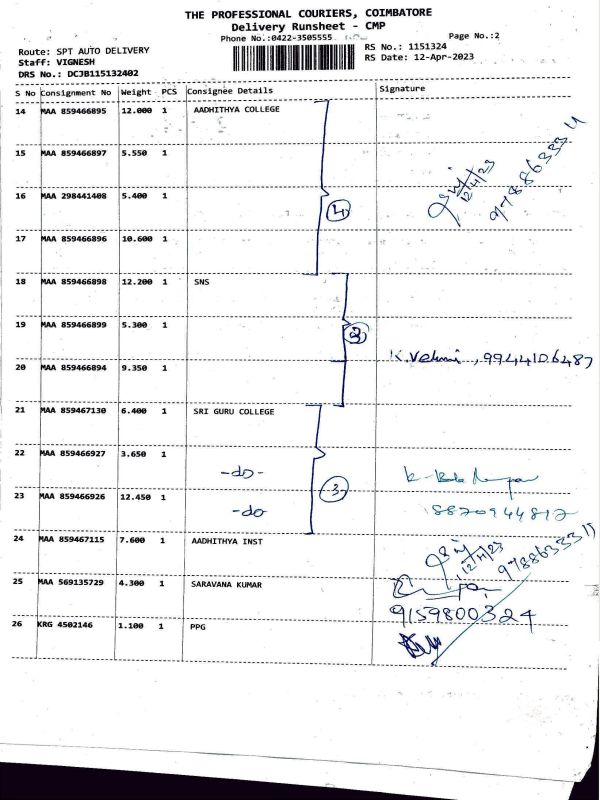 THE PROFESSIONAL COURIERS, COIMBATORE
Delivery Runsheet - CMP
Phone No.:0422-3505555
Page No.:2
Route: SPT AUTO DELIVERY
RS No.: 1151324
Staff: VIGNESH
RS Date: 12-Apr-2023
DRS No.: DCJB115132402
S No Consignment No Weight PCS Consignee Details Signature
14 MAA 859466895 12.000 1 AADHITHYA COLLEGE
15 MAA 859466897 5.550 1
12/4/23
16 MAA 298441408 5.400 1
4
17 MAA 859466896 10.600 1
18 MAA 859466898 12.200 1 SNS
19 MAA 859466899 5.300 1
3
K. Velmi, 9944106487
20 MAA 859466894 9.350 1
21 MAA 859467130 6.400 1 SRI GURU COLLEGE
22 MAA 859466927 3.650 1
-do-
3
23 MAA 859466926 12.450 1
-do
8870944817
24 MAA 859467115 7.600 1 AADHITHYA INST
12/4/23
9788633311
25 MAA 569135729 4.300 1 SARAVANA KUMAR
9159800324
26 KRG 4502146 1.100 1 PPG